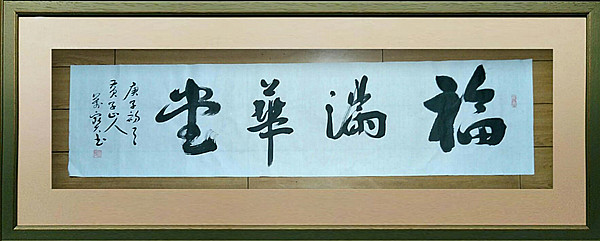 福滿華堂
庚子初夏
山人